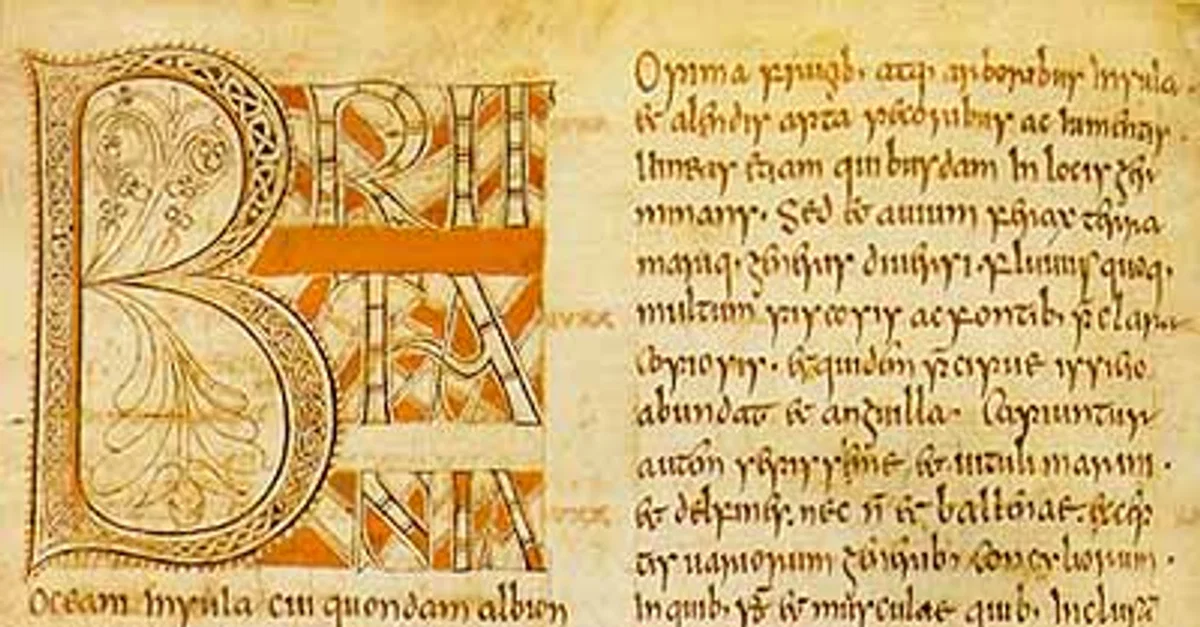 BRIT
TA
NIA
oceani insula cui quondam albion
Opima frugib· atq· arboribus insula·
et alendis apta pecoribus ac iumentis·
uineas etiam quibusdam in locis ger
minans· sed et auium ferax terra
mariq· generis diuersi· fluuiis quoq·
multum piscosis ac fontib· p̄clara
copiosis· et quidem p̄cipue issicio
abundat et anguilla· Capiuntur
autem et uituli marini·
et delfines· nec n̄ et ballenae· excep
tis uariorum generib· concyliorum·
in quib· s̄t et musculae quib·